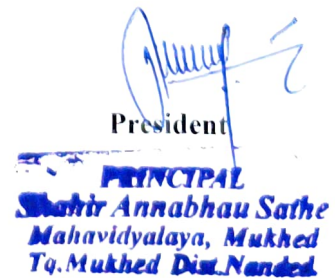 President
PRINCIPAL
Shahir Annabhau Sathe
Mahavidyalaya, Mukhed
Tq. Mukhed Dist. Nanded